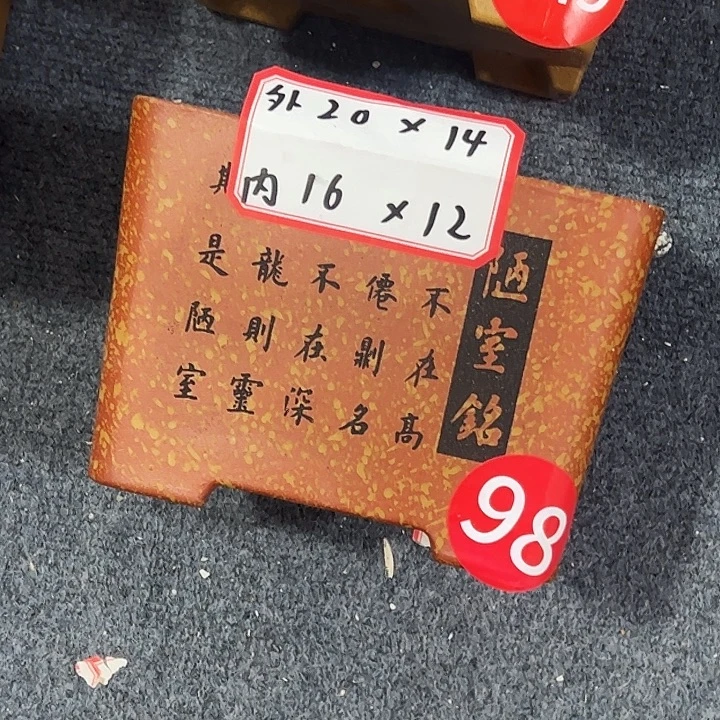 外 20 × 14
内 16 × 12
陋室銘
不在高
僊則名
不在深
龍則靈
是陋室
98